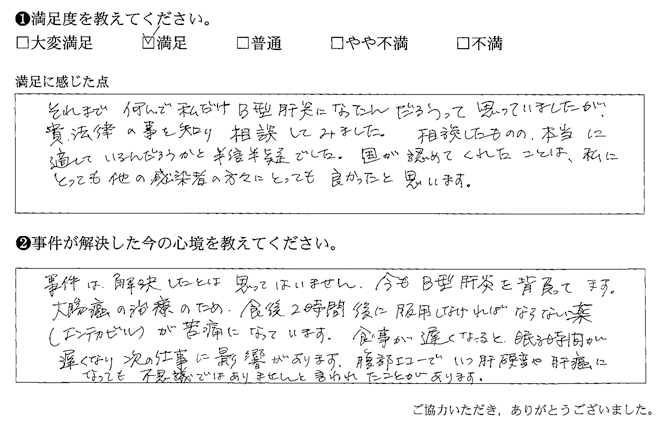 ❶満足度を教えてください。
□大変満足 ☑満足 □普通 □やや不満 □不満
満足に感じた点
それまで 何んで私だけ B型肝炎になったんだろうって思っていましたが、
法律の事を知り 相談してみました。 相談したものの、本当に
適しているんだろうかと半信半疑でした。国が認めてくれたことは、私に
とっても他の感染者の方々にとっても 良かったと思います。
❷事件が解決した今の心境を教えてください。
事件は、解決したとは 思ってはいません、今も B型肝炎を背負ってます。
大腸癌の治療のため、食後2時間後に服用しなければならない薬
(エンテカビル)が苦痛になっています。食事が遅くなると、眠る時間が
遅くなり次の仕事に影響があります、腹部エコーでいつ肝硬変や肝癌に
なっても不思議ではありませんと言われたことがあります。
ご協力いただき，ありがとうございました。